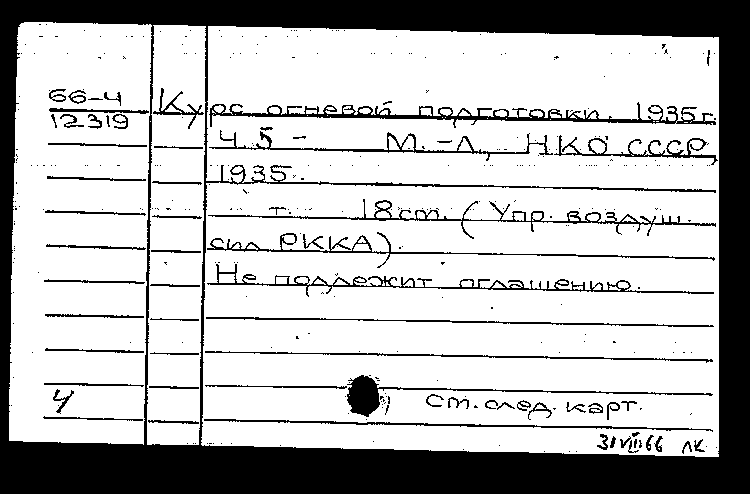 66-4 Курс огневой подготовки. 1935г.
12319 Ч.5 - М.-Л., НКО СССР,
1935.
т. 18см. (Упр. воздуш.
сил РККА).
Не подлежит оглашению.
4 См. след. карт.
31 VIII 66 ЛК